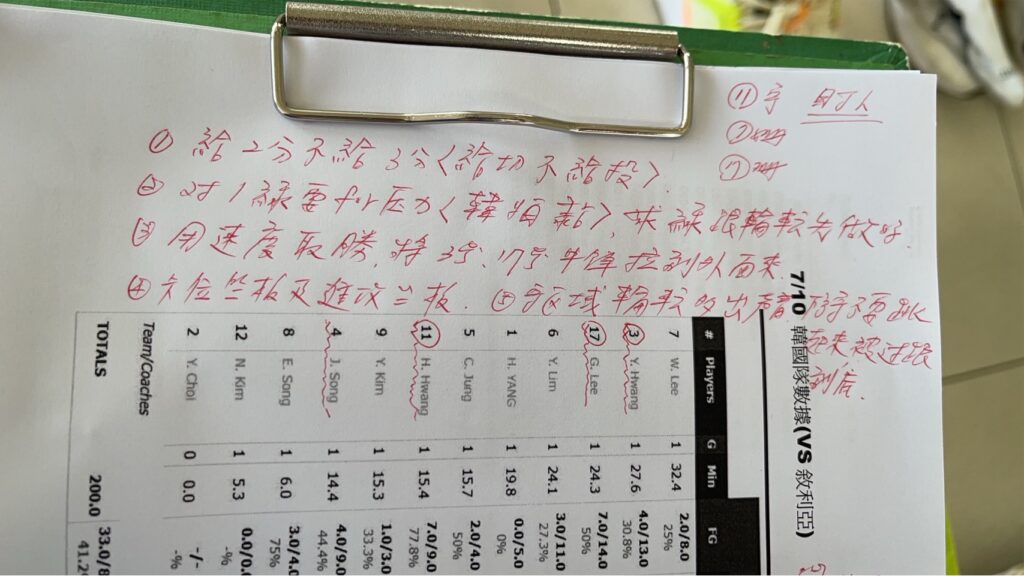 ⑪ 守 盯人
②
⑦
① 給2分不給3分〈給切不給投〉.
② 对1線要有压力〈韓頻難〉, 跟輪転先做好.
③ 用速度取勝, 將3号、17号中鋒拉到外面來.
④ 卡位籃板及進攻籃板. ⑤ 守区域輪転多出声
到底.
7/10 韓國隊數據(VS 敘利亞)
# Players G Min FG
7 W. Lee 1 32.4 2.0/8.0 25%
3 Y. Hwang 1 27.6 4.0/13.0 30.8%
17 G. Lee 1 24.3 7.0/14.0 50%
6 Y. Lim 1 24.1 3.0/11.0 27.3%
1 H. YANG 1 19.8 0.0/5.0 0%
5 C. Jung 1 15.7 2.0/4.0 50%
11 H. Hwang 1 15.4 7.0/9.0 77.8%
9 Y. Kim 1 15.3 1.0/3.0 33.3%
4 J. Song 1 14.4 4.0/9.0 44.4%
8 E. Song 1 6.0 3.0/4.0 75%
12 N. Kim 1 5.3 0.0/0.0 -%
2 Y. Choi 0 0.0 -/- -%
Team/Coaches
TOTALS 200.0 33.0/8 41.2